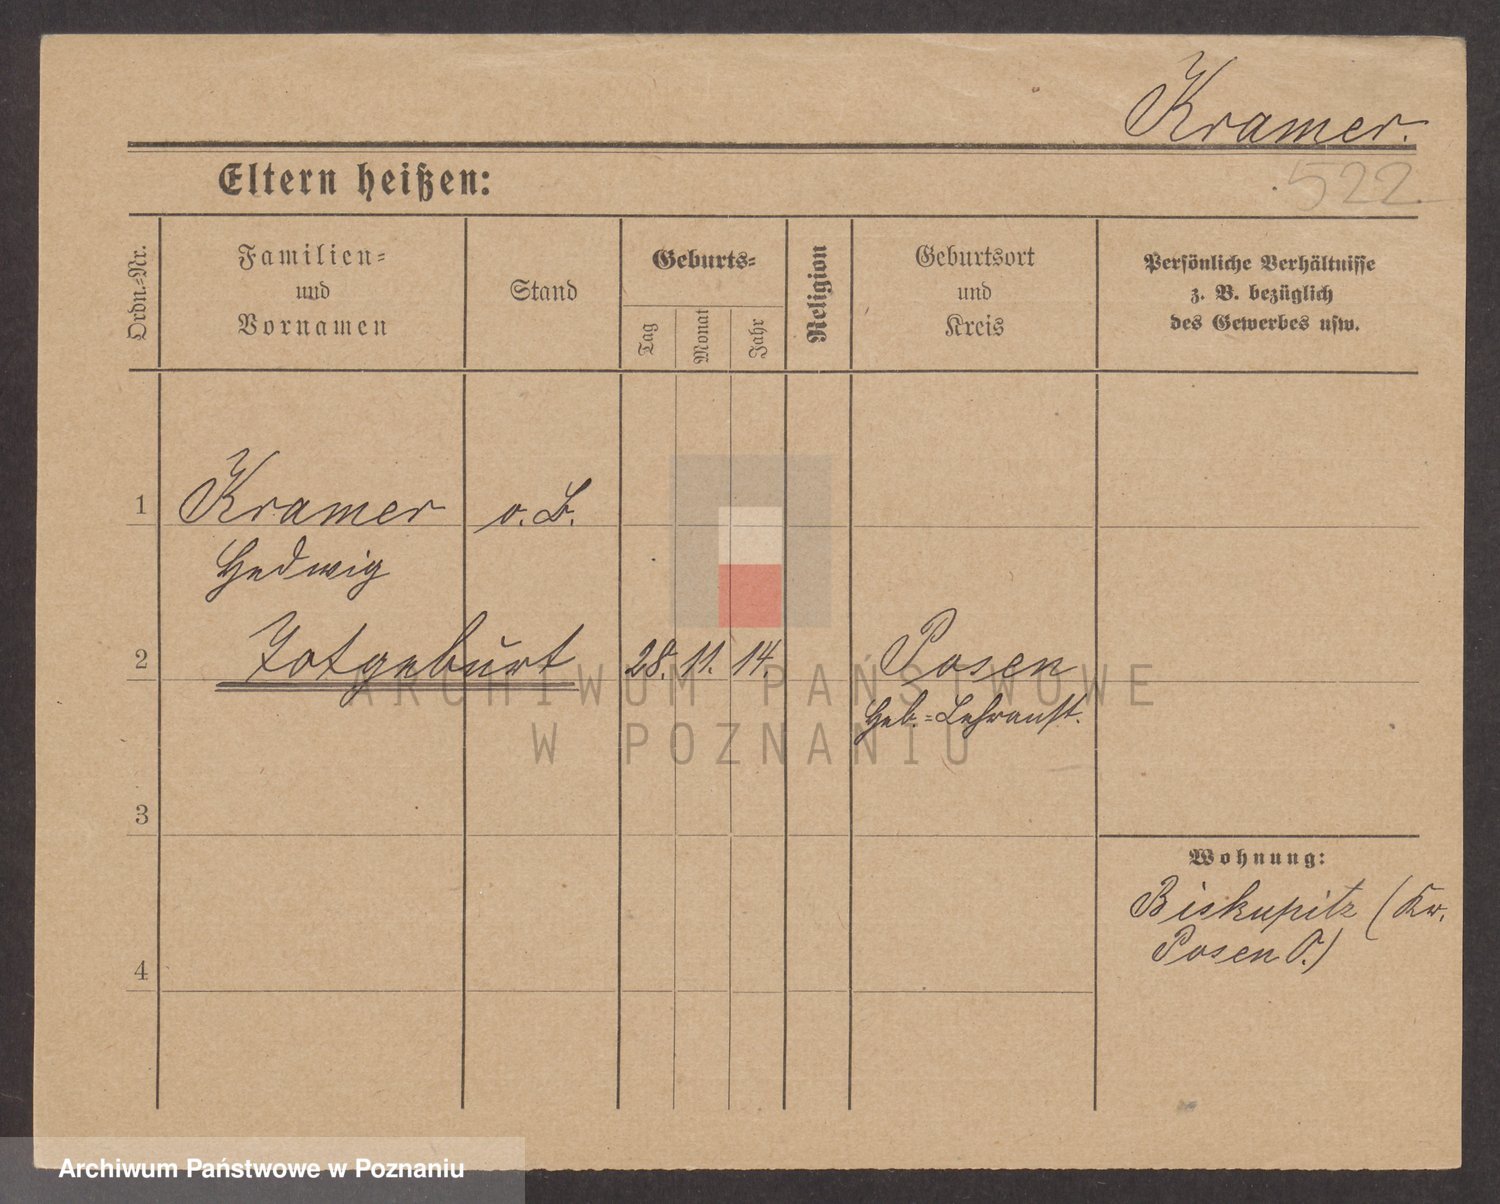 Kramer.
522
Eltern heißen:
Ordn.-Nr.
Familien-
und
Vornamen
Stand
Geburts-
Tag
Monat
Jahr
Religion
Geburtsort
und
Kreis
Persönliche Verhältnisse
z. B. bezüglich
des Gewerbes usw.
1 Kramer o. B.
Hedwig
2 Totgeburt 28. 11. 14. Posen
Heb.=Lehranst.
3
Wohnung:
Biskupitz (Kr.
Posen O.)
4
ARCHIWUM PAŃSTWOWE
W POZNANIU
Archiwum Państwowe w Poznaniu